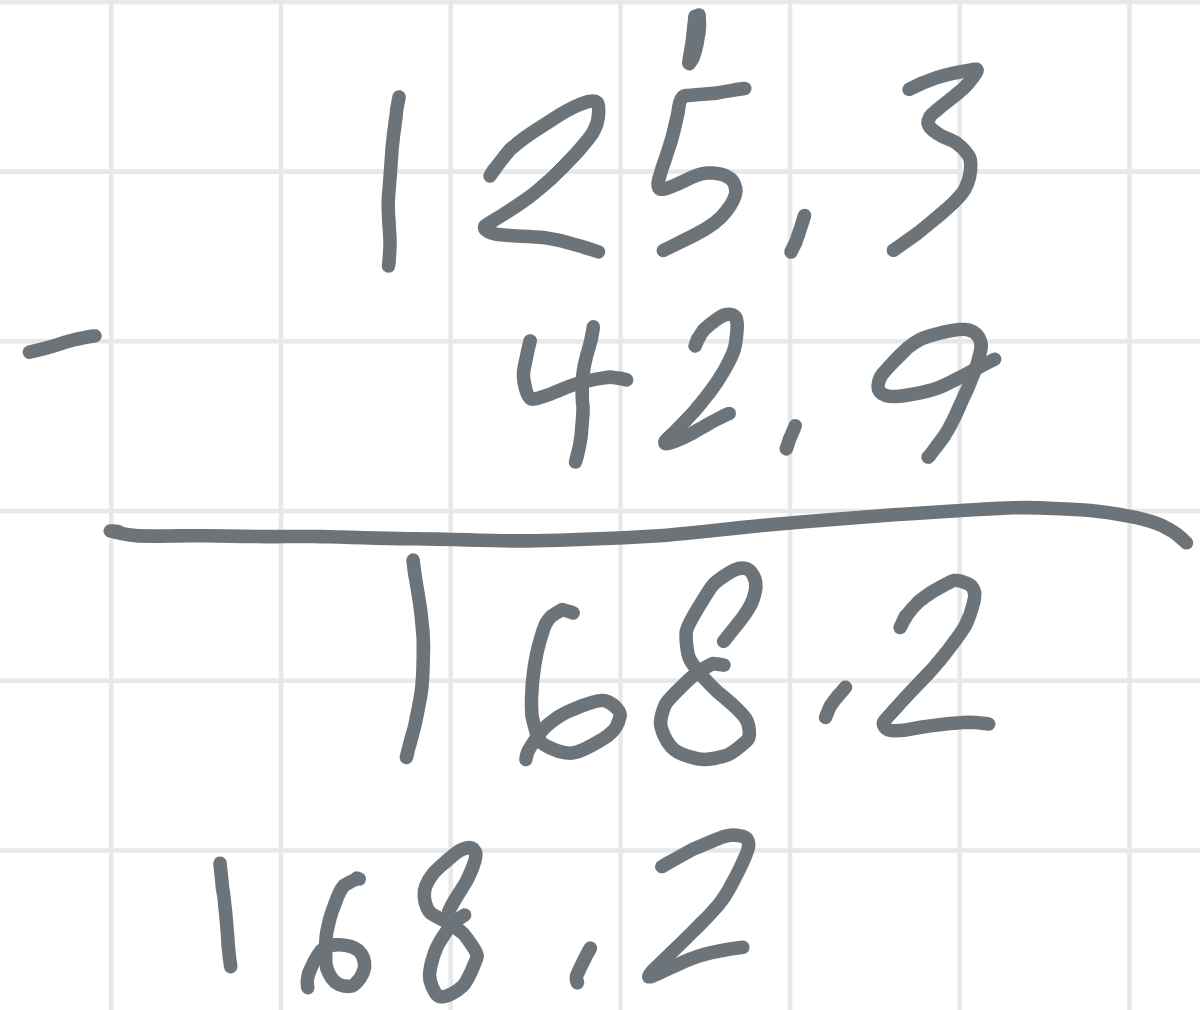 1
125,3
- 42,9
168,2
168,2